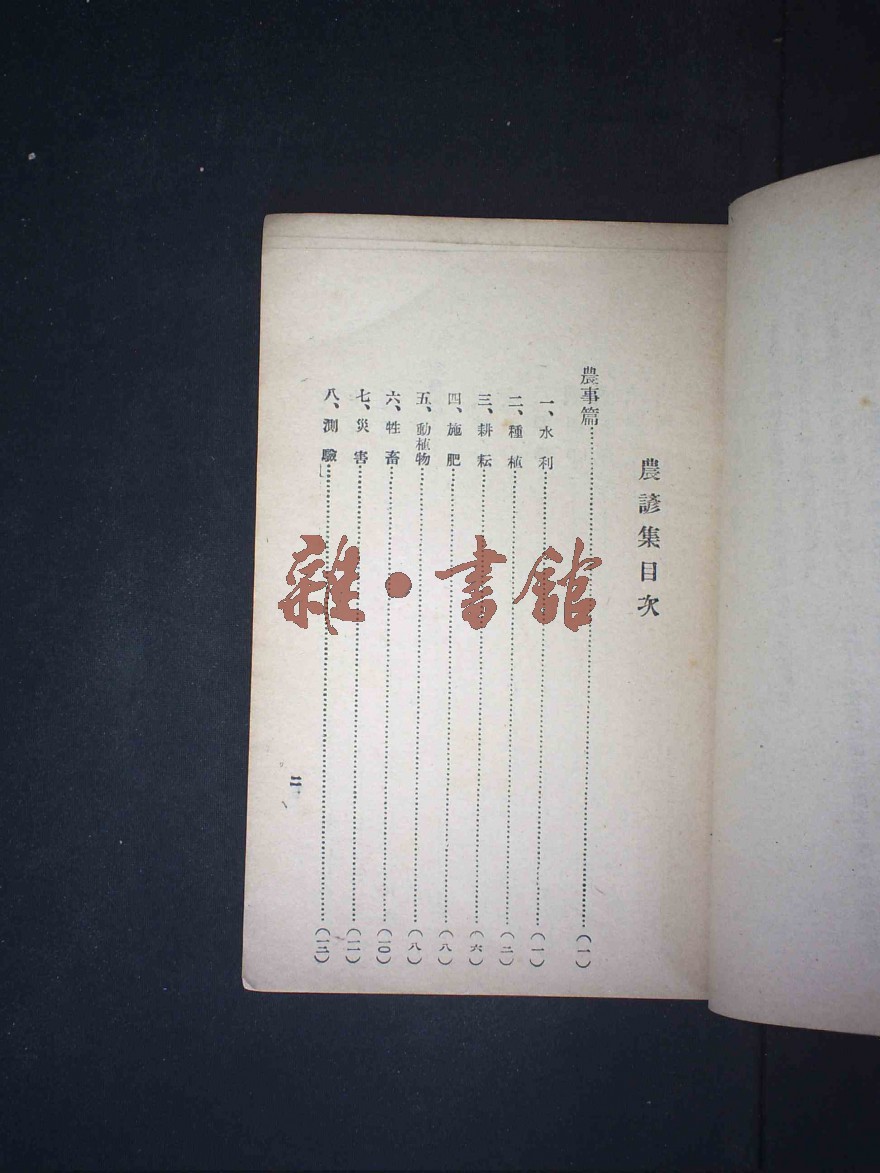 農諺集目次
農事篇……(一)
一、水利……(一)
二、種植……(二)
三、耕耘……(六)
四、施肥……(八)
五、動植物……(八)
六、牲畜……(一〇)
七、災害……(一一)
八、測驗……(一三)
二
雜·書館